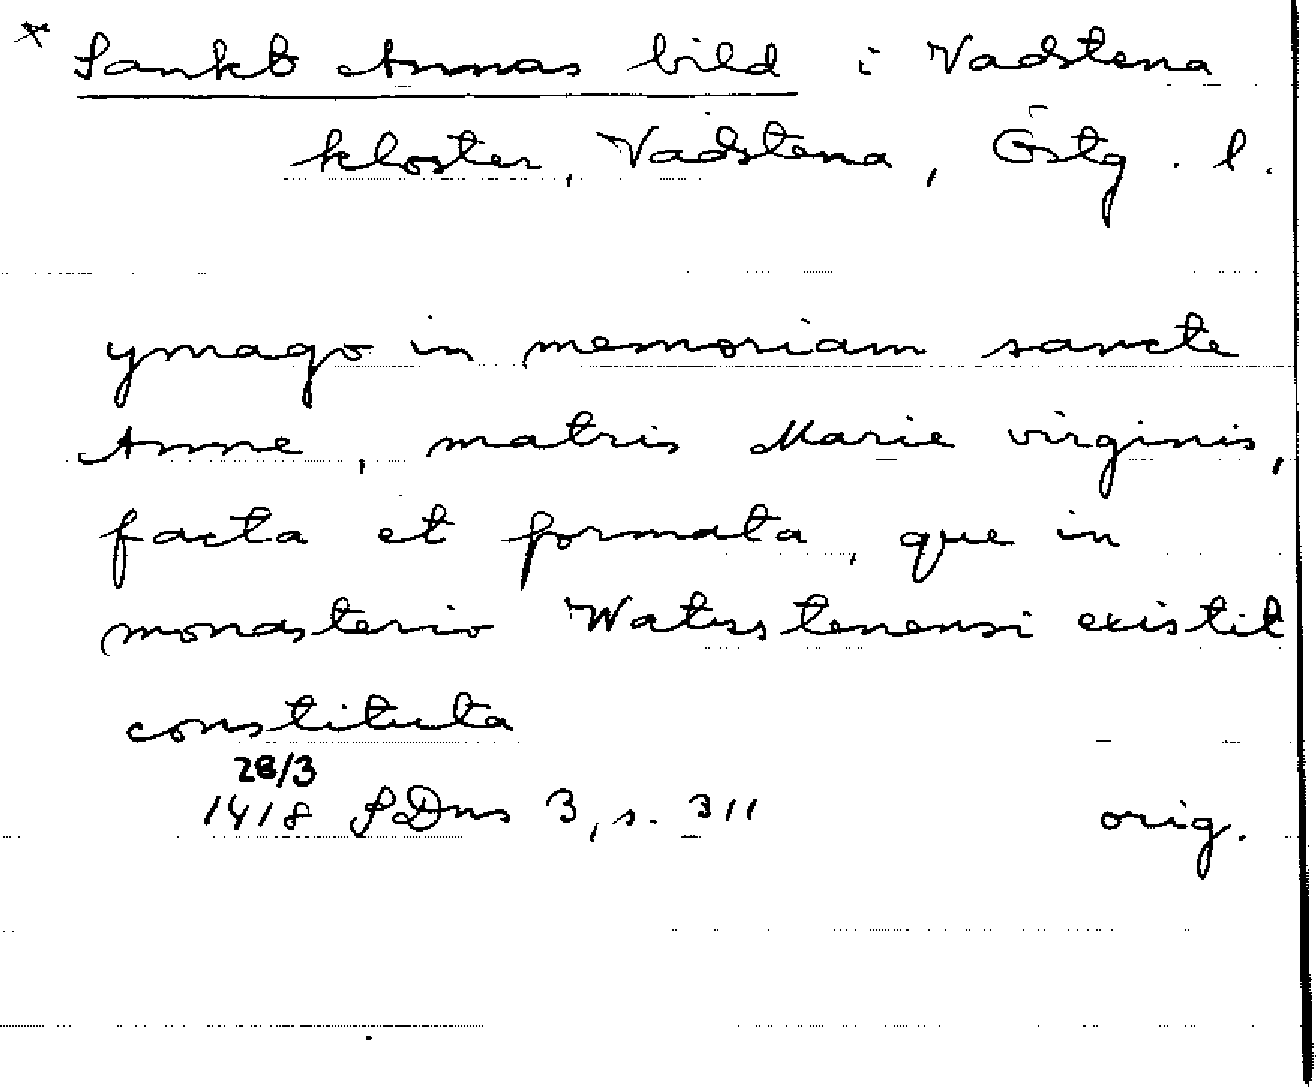 * Sankt Annas bild i Vadstena
kloster, Vadstena, Östg. l.
ymago in memoriam sancte
Anne, matris Marie virginis,
facta et formata, que in
monasterio Watzstenensi existit
constituta
28/3
1418 SDns 3, s. 311 orig.